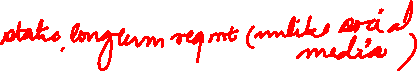 static, longterm report (unlike social
media)